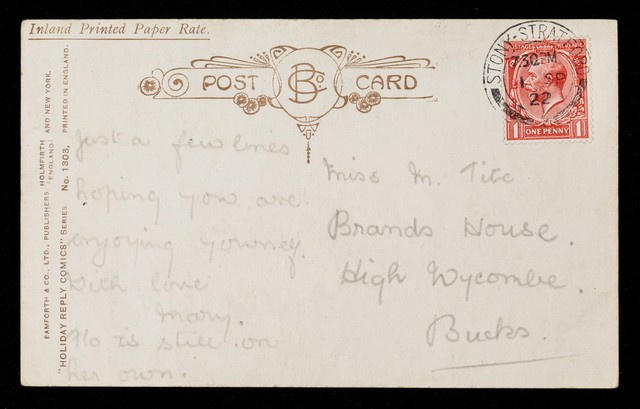 Inland Printed Paper Rate.
POST CARD
BCo
STONY-STRATFORD
7.30PM
22
POSTAGE REVENUE
1 ONE PENNY 1
BAMFORTH & CO., LTD., PUBLISHERS HOLMFIRTH (ENGLAND) AND NEW YORK.
"HOLIDAY REPLY COMICS" SERIES No. 1303, PRINTED IN ENGLAND.
Just a few lines
hoping you are
enjoying yourself
With love
Mary.
Flo is still on
her own.
Miss M. Tite
Brands House.
High Wycombe.
Bucks.